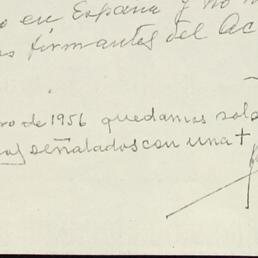 o en España y no
os firmantes del Ac
ro de 1956 quedamos solo
señalados con una +